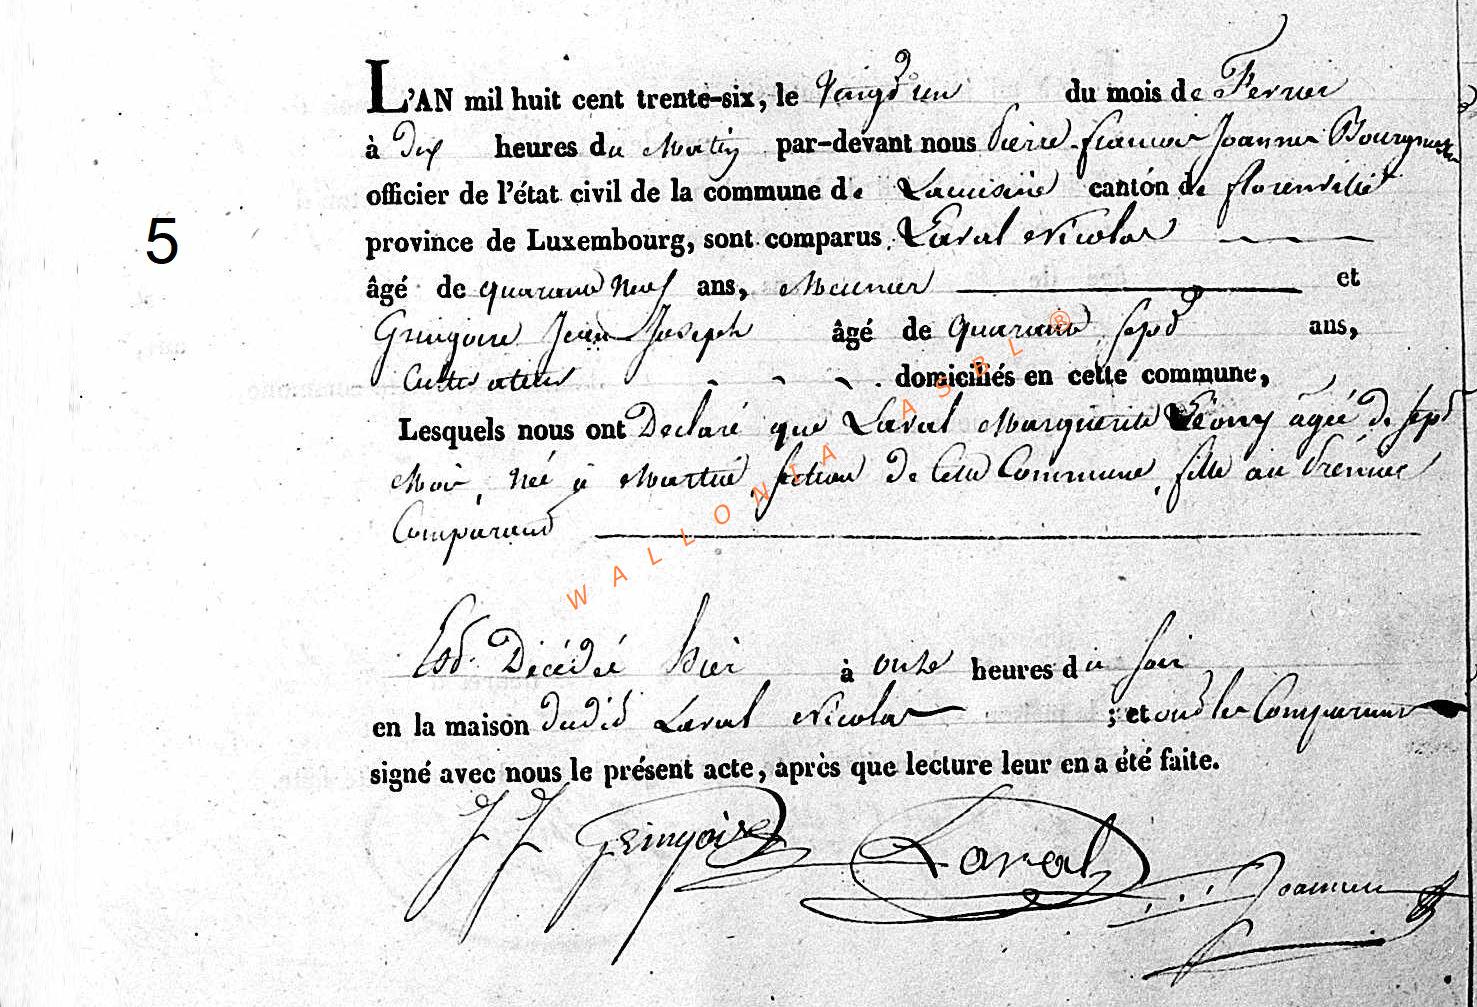 L'AN mil huit cent trente-six, le Vaingd un du mois de Fevrier
à dix heures du Matin par-devant nous Pierre francois Joannes Bourgmestre
officier de l'état civil de la commune de Lacuisine canton de florenville
province de Luxembourg, sont comparus Laval Nicolas
5
âgé de quarante Neuf ans, Meunier et
Gringoire Jean Joseph âgé de quarante sepd ans,
Cultivateur domiciliés en cette commune,
Lesquels nous ont Declaré que Laval Marguerite Léony agée de sepd
Mois, Neé à Martué section de Cette Commune, fille au Premier
Comparand
WALLONIA ASBL ®
Esd Décédée hier à onze heures du soir
en la maison dudid Laval Nicolas ; et ond les Comparans
signé avec nous le présent acte, après que lecture leur en a été faite.
J J Gringoire Laval Joannes